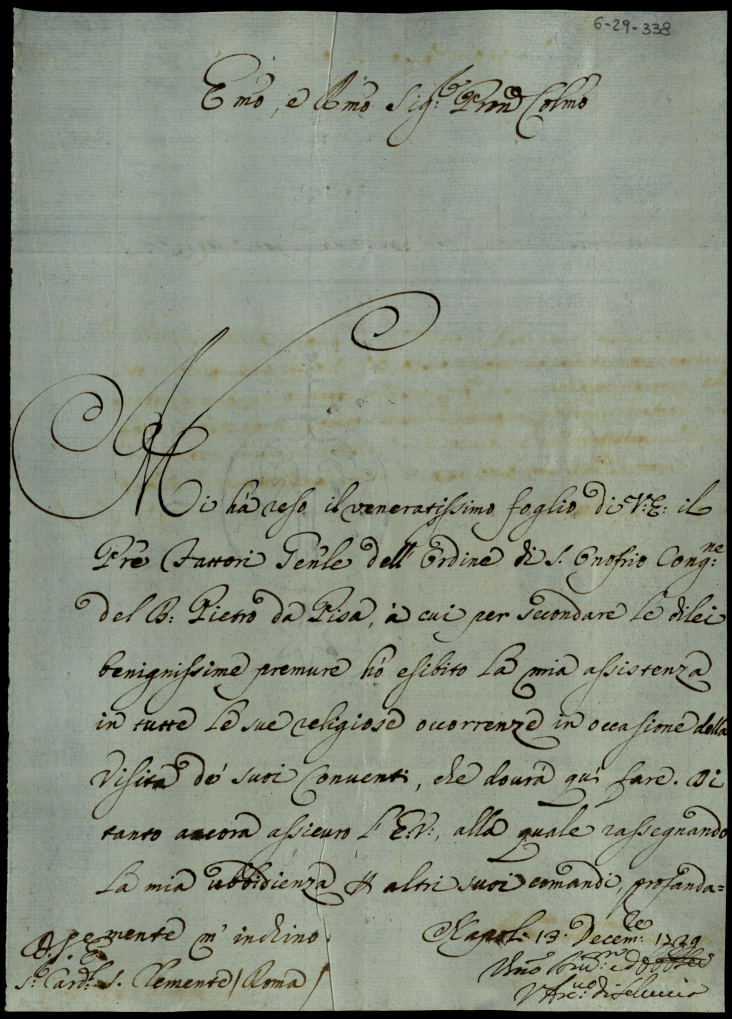 6-29-338
Emo, e Rmo Sig:r Prōn Colmo
Mi hà reso il veneratissimo foglio di V: E: il
Prē Fattori Gen̄le dell' Ordine di S. Onofrio Cong:ne
del B: Pietro da Pisa, à cui per secondare le di lei
benignissime premure hò esibito la mia assistenza
in tutte le sue religiose occorrenze in occasione della
Visita de' suoi Conventi, che dourà quì fare. Di
tanto ancora assicuro l' E: V:, alla quale rassegnando
la mia ubbidienza p altri suoi comandi, profonda=
mente m' inchino.
Napoli 13 Decem:re 1729
S:r Card:l S. Clemente / Roma /
V Arc:uo di Seleucia